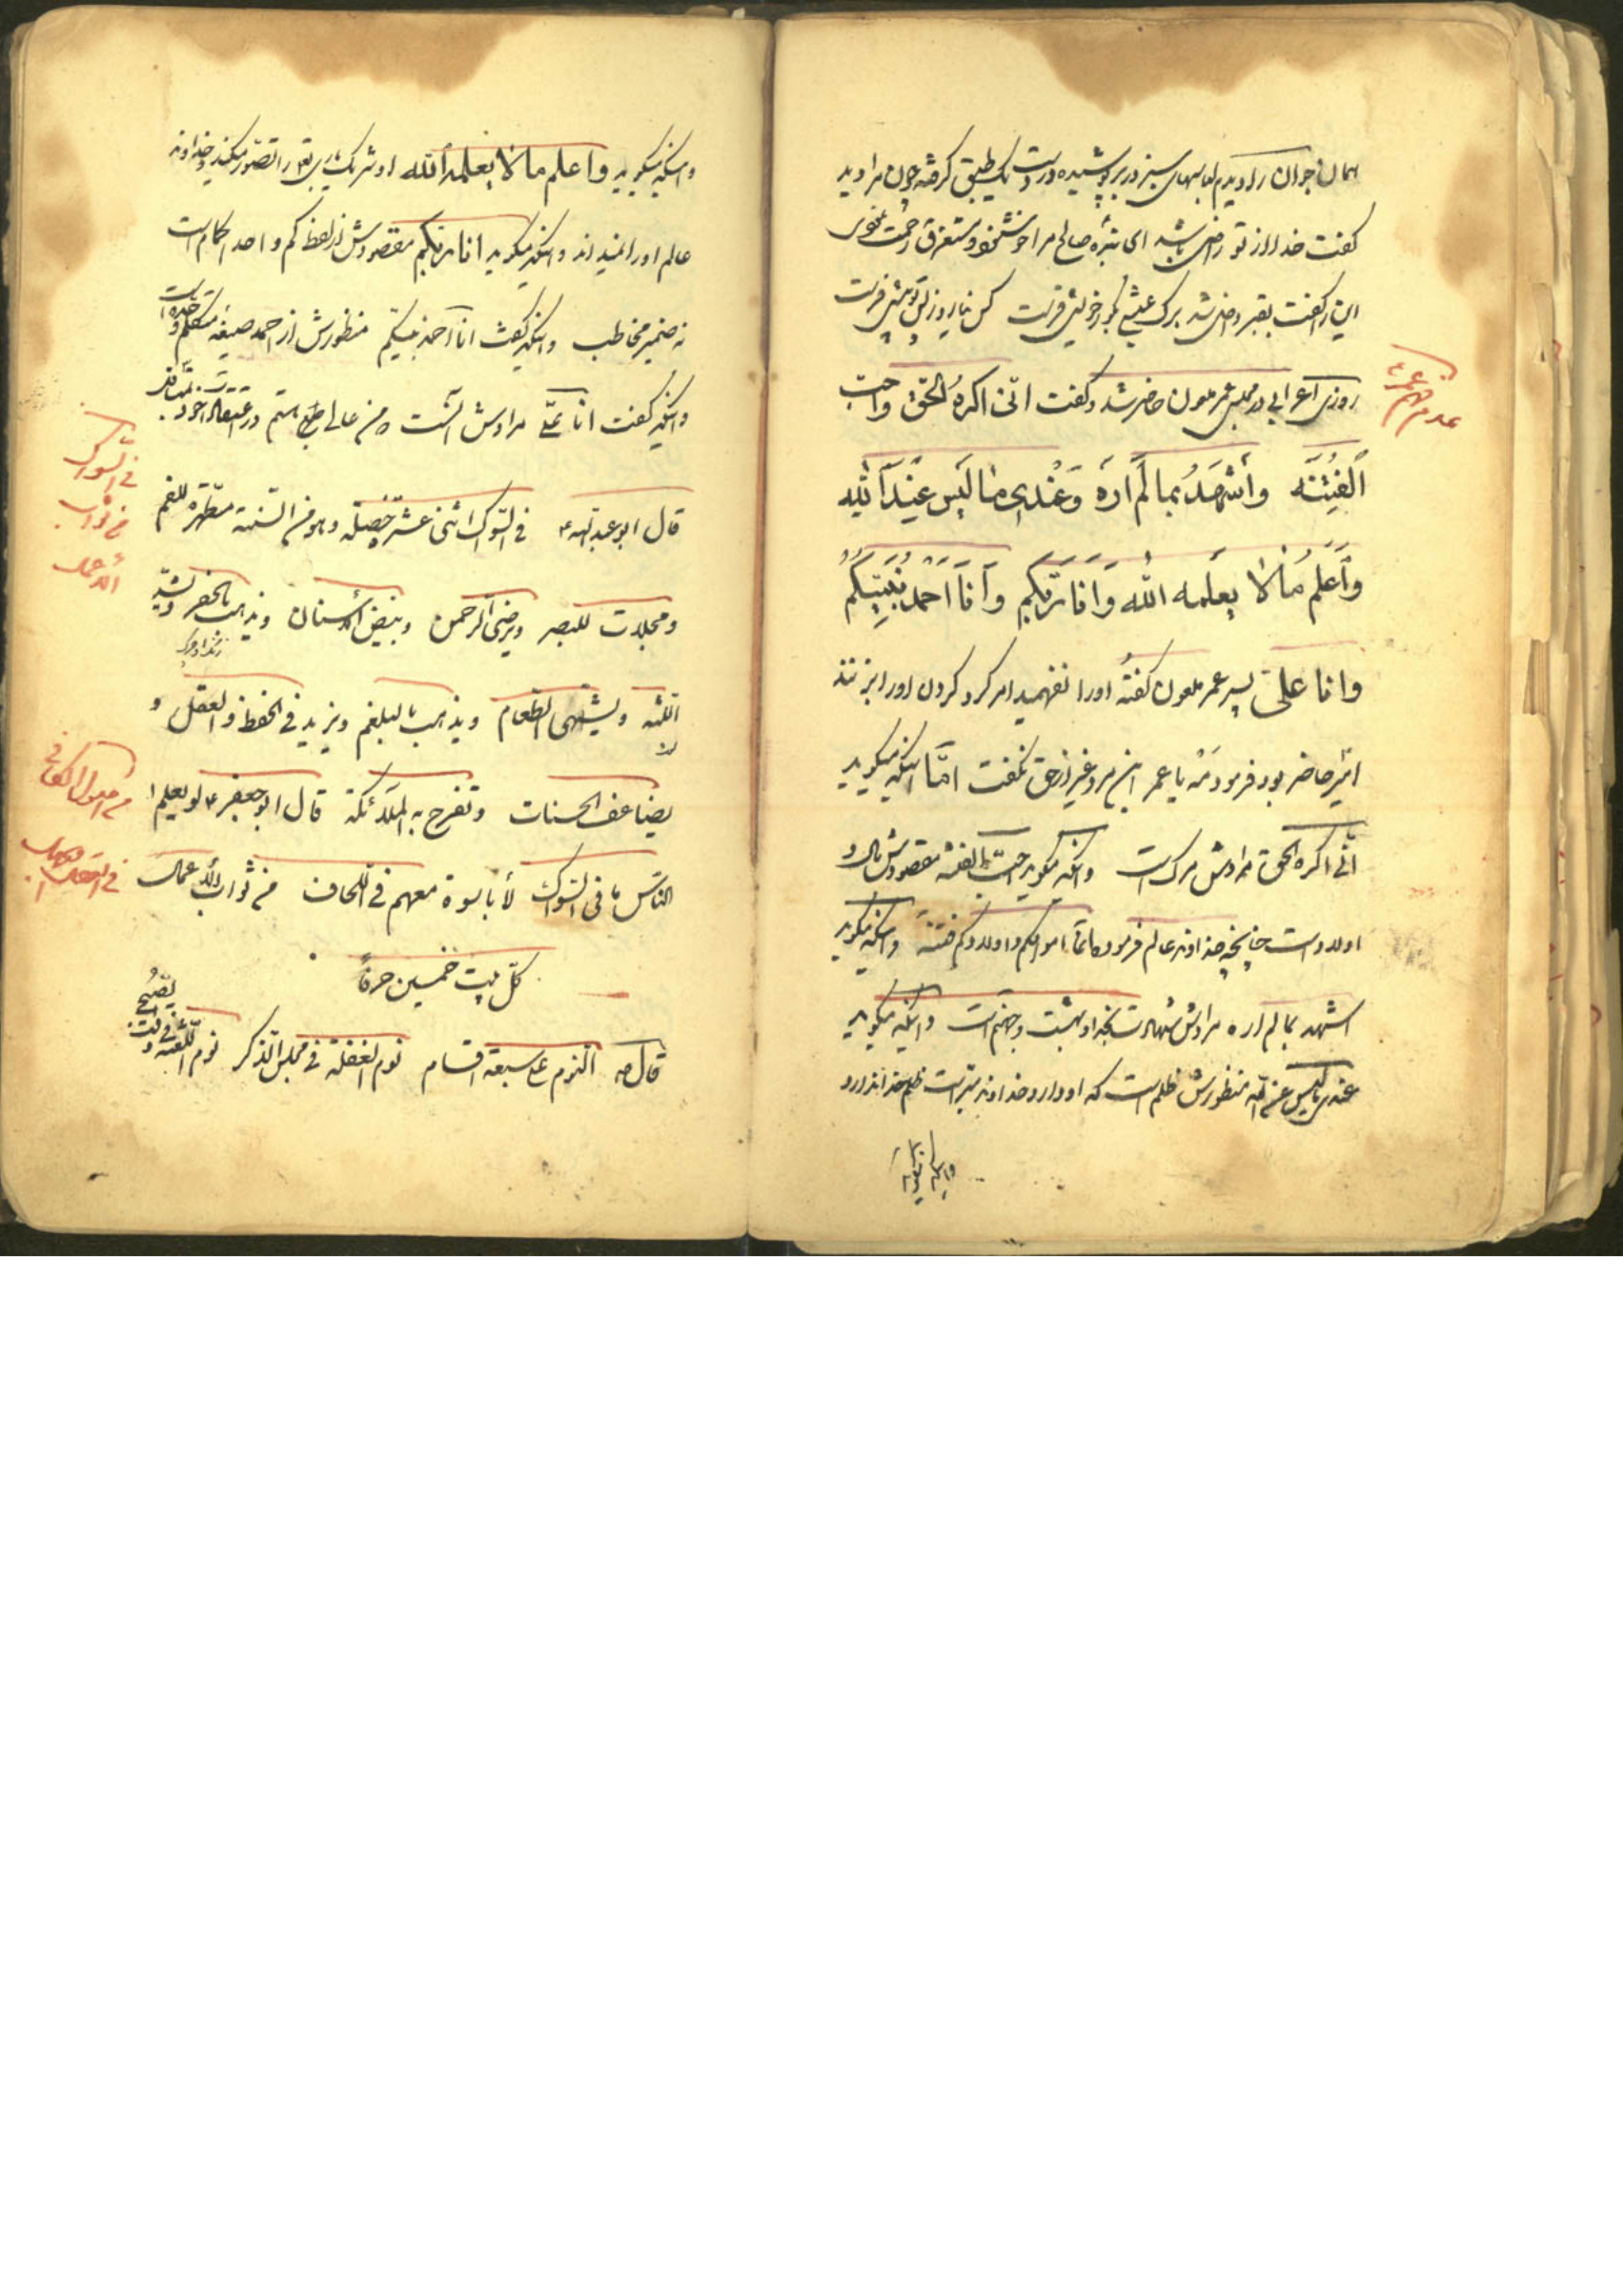 همان جوان را دیدم لباسهای سبز در بر پوشیده و در دست یک طبق گرفته چون مرا دید
گفت خدا از تو راضی باشد ای بنده صالح مرا خوشنود و مستغرق رحمت نمودی
این را گفت بقبر داخل شد برک عیشی بگور خویش فرست کس نیارد ز پس تو پیش فرست
عدم فهم عمر
روزی اعرابی در مجلس عمر ملعون حاضر شد و گفت انّی اکره الحقّ واحبّ
الفِتْنَه وَأشْهَدُ بما لَمْ اَرَهُ وَعِنْدی مٰا لَیس عِنْدَ اللّه
وَأَعْلَمُ مٰا لاٰ یعلمه اللّه وَاَنَا رَبُّکُم وَأَنَا اَحْمَدُ نَبِیِّکُمْ
وانا علیّ پسر عمر ملعون گفته اورا نفهمید امر کرد کردن اورا بزنند
امیر حاضر بود فرمود مَه یا عمر این مرد غیر از حق نگفت امّا اینکه میگوید
انّی اکره الحقّ مرادش مرک است و اینکه میگوید احبّ الفتنه مقصودش مال و
اولاد است چنانچه خداوند عالم فرمود انّما اموالکم و اولادکم فتنة و اینکه میگوید
اشهد بما لم اره مرادش شهادت بخدا و بهشت و جهنم است و اینکه میگوید
عندی ما لیس عند اللّه منظورش ظلم است که او دارد و خداوند ظلم ندارد
و اینکه میگوید
و اینکه میگوید واعلم ما لا یعلمه اللّه او شریک باری تعالی را تصوّر میکند و خداوند
عالم اورا نمیداند و اینکه میگوید انا ربّکم مقصودش از لفظ کم واحد اکمام است
نه ضمیر مخاطب و اینکه گفت انا احمد نبیّکم منظورش از احمد صیغه متکلّم وحده است
و اینکه گفت انا علیّ مرادش آنست که من عالی طبع هستم در اعتقاد خود
فی السّواک
من ثواب
الاعمال
قال ابو عبد اللّه ع فی السّواک اثنی عشر خصلة و هو من السّنة مطهّرة للفم
ومجلات للبصر ویرضی الرّحمن ویبیض الأسنان ویذهب بالحفر ویشدّ
اللّثه ویشهی الطّعام ویذهب بالبلغم ویزید فی الحفظ و العقل و
من اصول الکافی
یضاعف الحسنات وتفرح به الملائکة قال ابو جعفر ع لو یعلم ا
النّاس ما فی السّواک لأباتوه معهم فی اللّحاف من ثواب الأعمال
کلّ بیت خمسین حرفاً
قال ص النّوم علی سبعة اقسام نوم الغفلة فی مجلس الذّکر نوم اللّعنة فی وقت